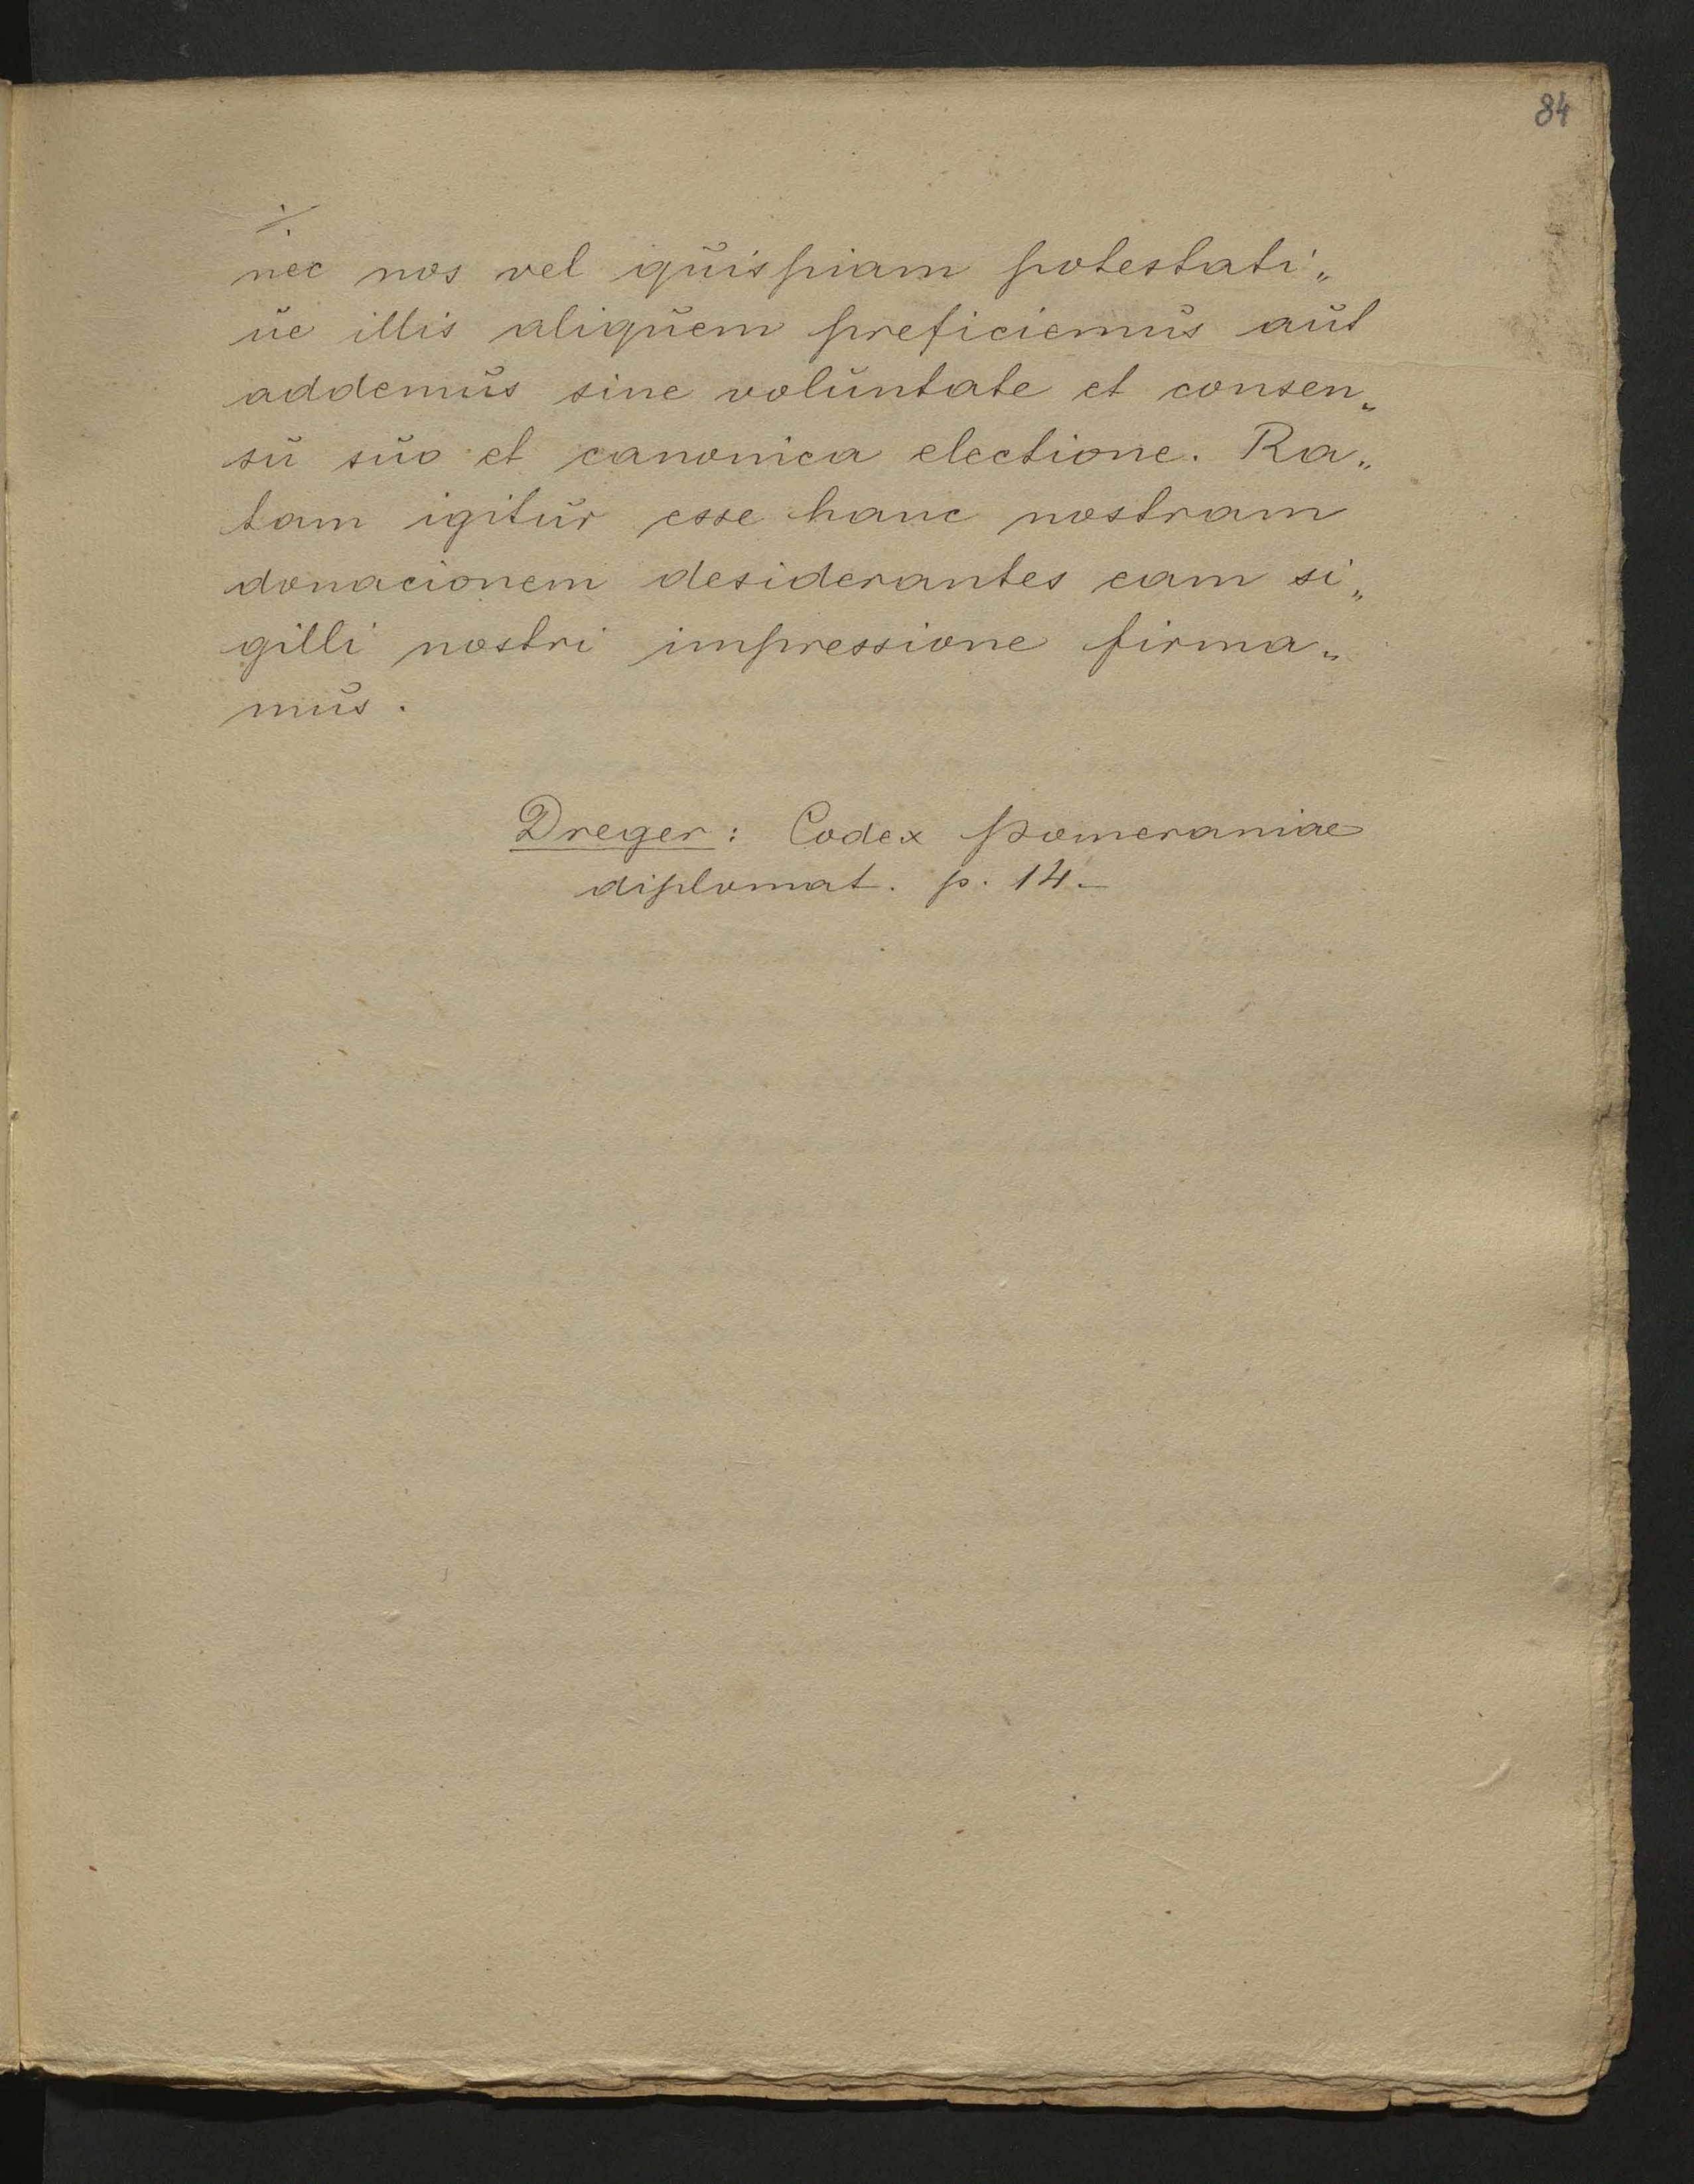 84
./.
nec nos vel quispiam potestati„
ue illis aliquem preficiemus aut
addemus sine voluntate et consen„
su suo et canonica electione. Ra„
tam igitur esse hanc nostram
donacionem desiderantes eam si„
gilli nostri impressione firma„
mus.
Dreger: Codex Pomeraniae
diplomat. p. 14.–